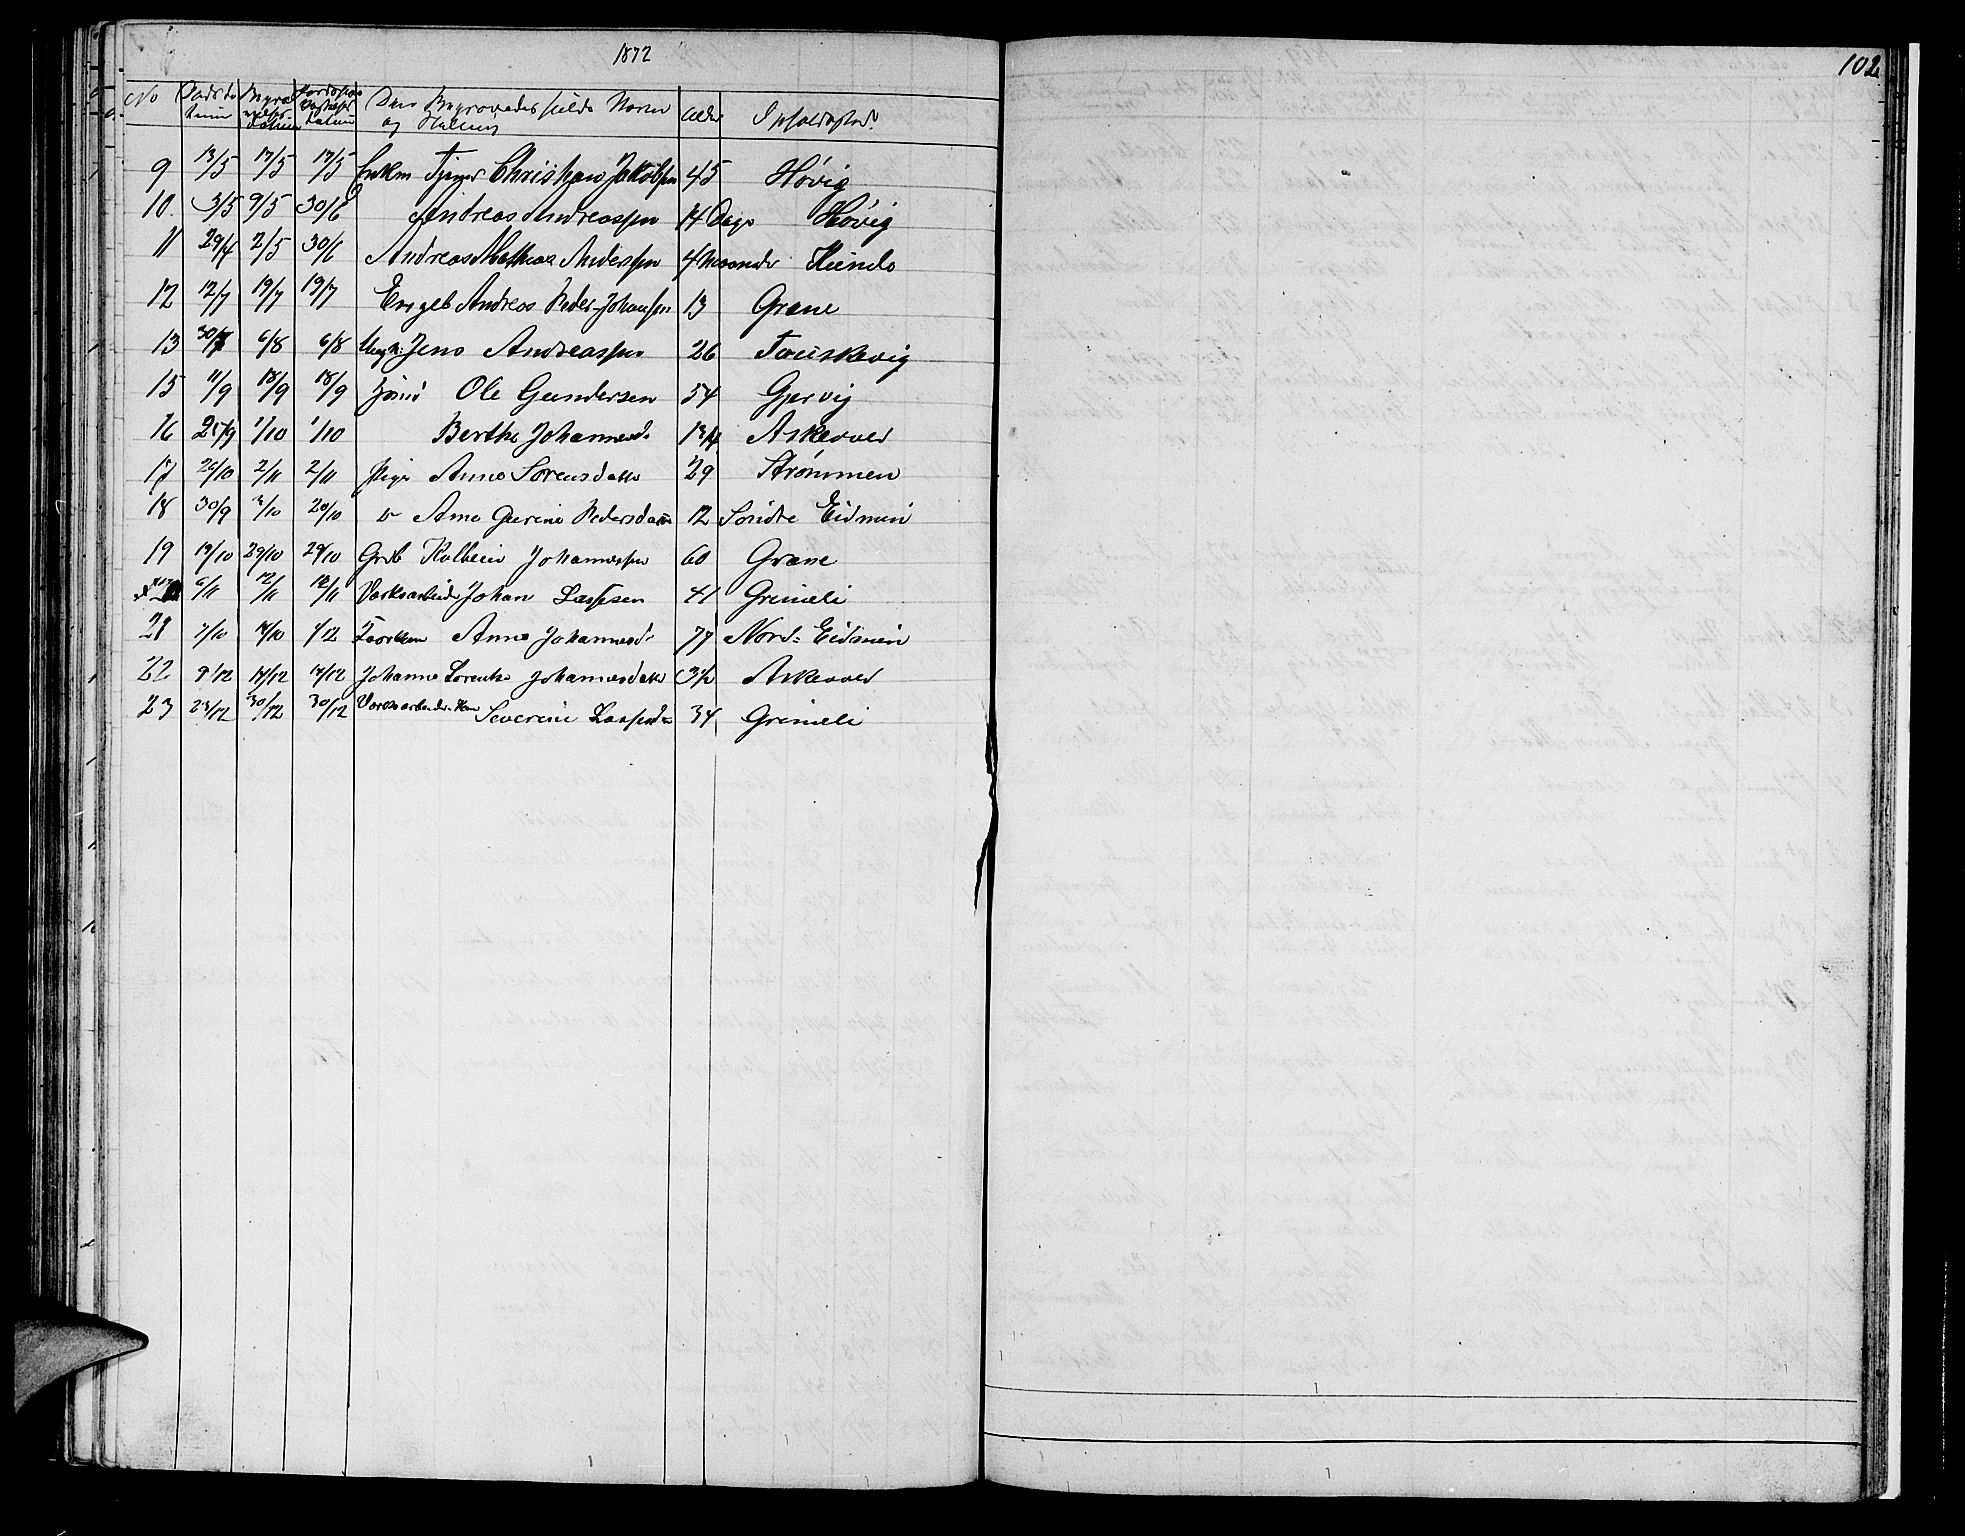 1872
102
No Døds Da- tum Begra- velses Datum Jordspaa- kastelses Datum Den Begravedes fulde Navn og Stilling Alder Opholdssted.
9 13/5 17/5 17/5 Enkem Christians Jakobsen 45 Høvig
10. 3/5 9/5 30/6 Andreas Andreassen 14 Dage Høvig
11 29/4 2/5 30/6 Andreas Mathias Anderssen 4 Maaneder
12 12/7 19/7 19/7 Engeb Andreas Peder Johanssen 13 Grane
13 6/8 6/8 Ungk: Jens Andreassen 26 Fauskevig
15 11/9 18/9 18/9 Ole Gundersen 54 Gjervig
16 1/10 1/10 Berthe Johannesd. Askevold
17 26/10 2/11 2/11 Pige Anne Sørensdatter 29 Strømmen
18 30/9 3/10 20/10 Ane Gurine Pedersdatter 12 Søndre Eidmin
19 19/10 29/10 29/10 Grdb Kolbein Johannessen 60 Grane
6/11 12/11 12/11 Værksarbeider Johan Lassesen 41 Grimeli
21 7/10 14/10 1/12 Anne Johannesd. 77 Nord: Eidmin
22 9/12 17/12 17/12 Johanne Lorentse Johannesdatter 3½ Askevold
23 23/12 30/12 30/12 Værksarbeider Severine Lassesd 34 Grimeli